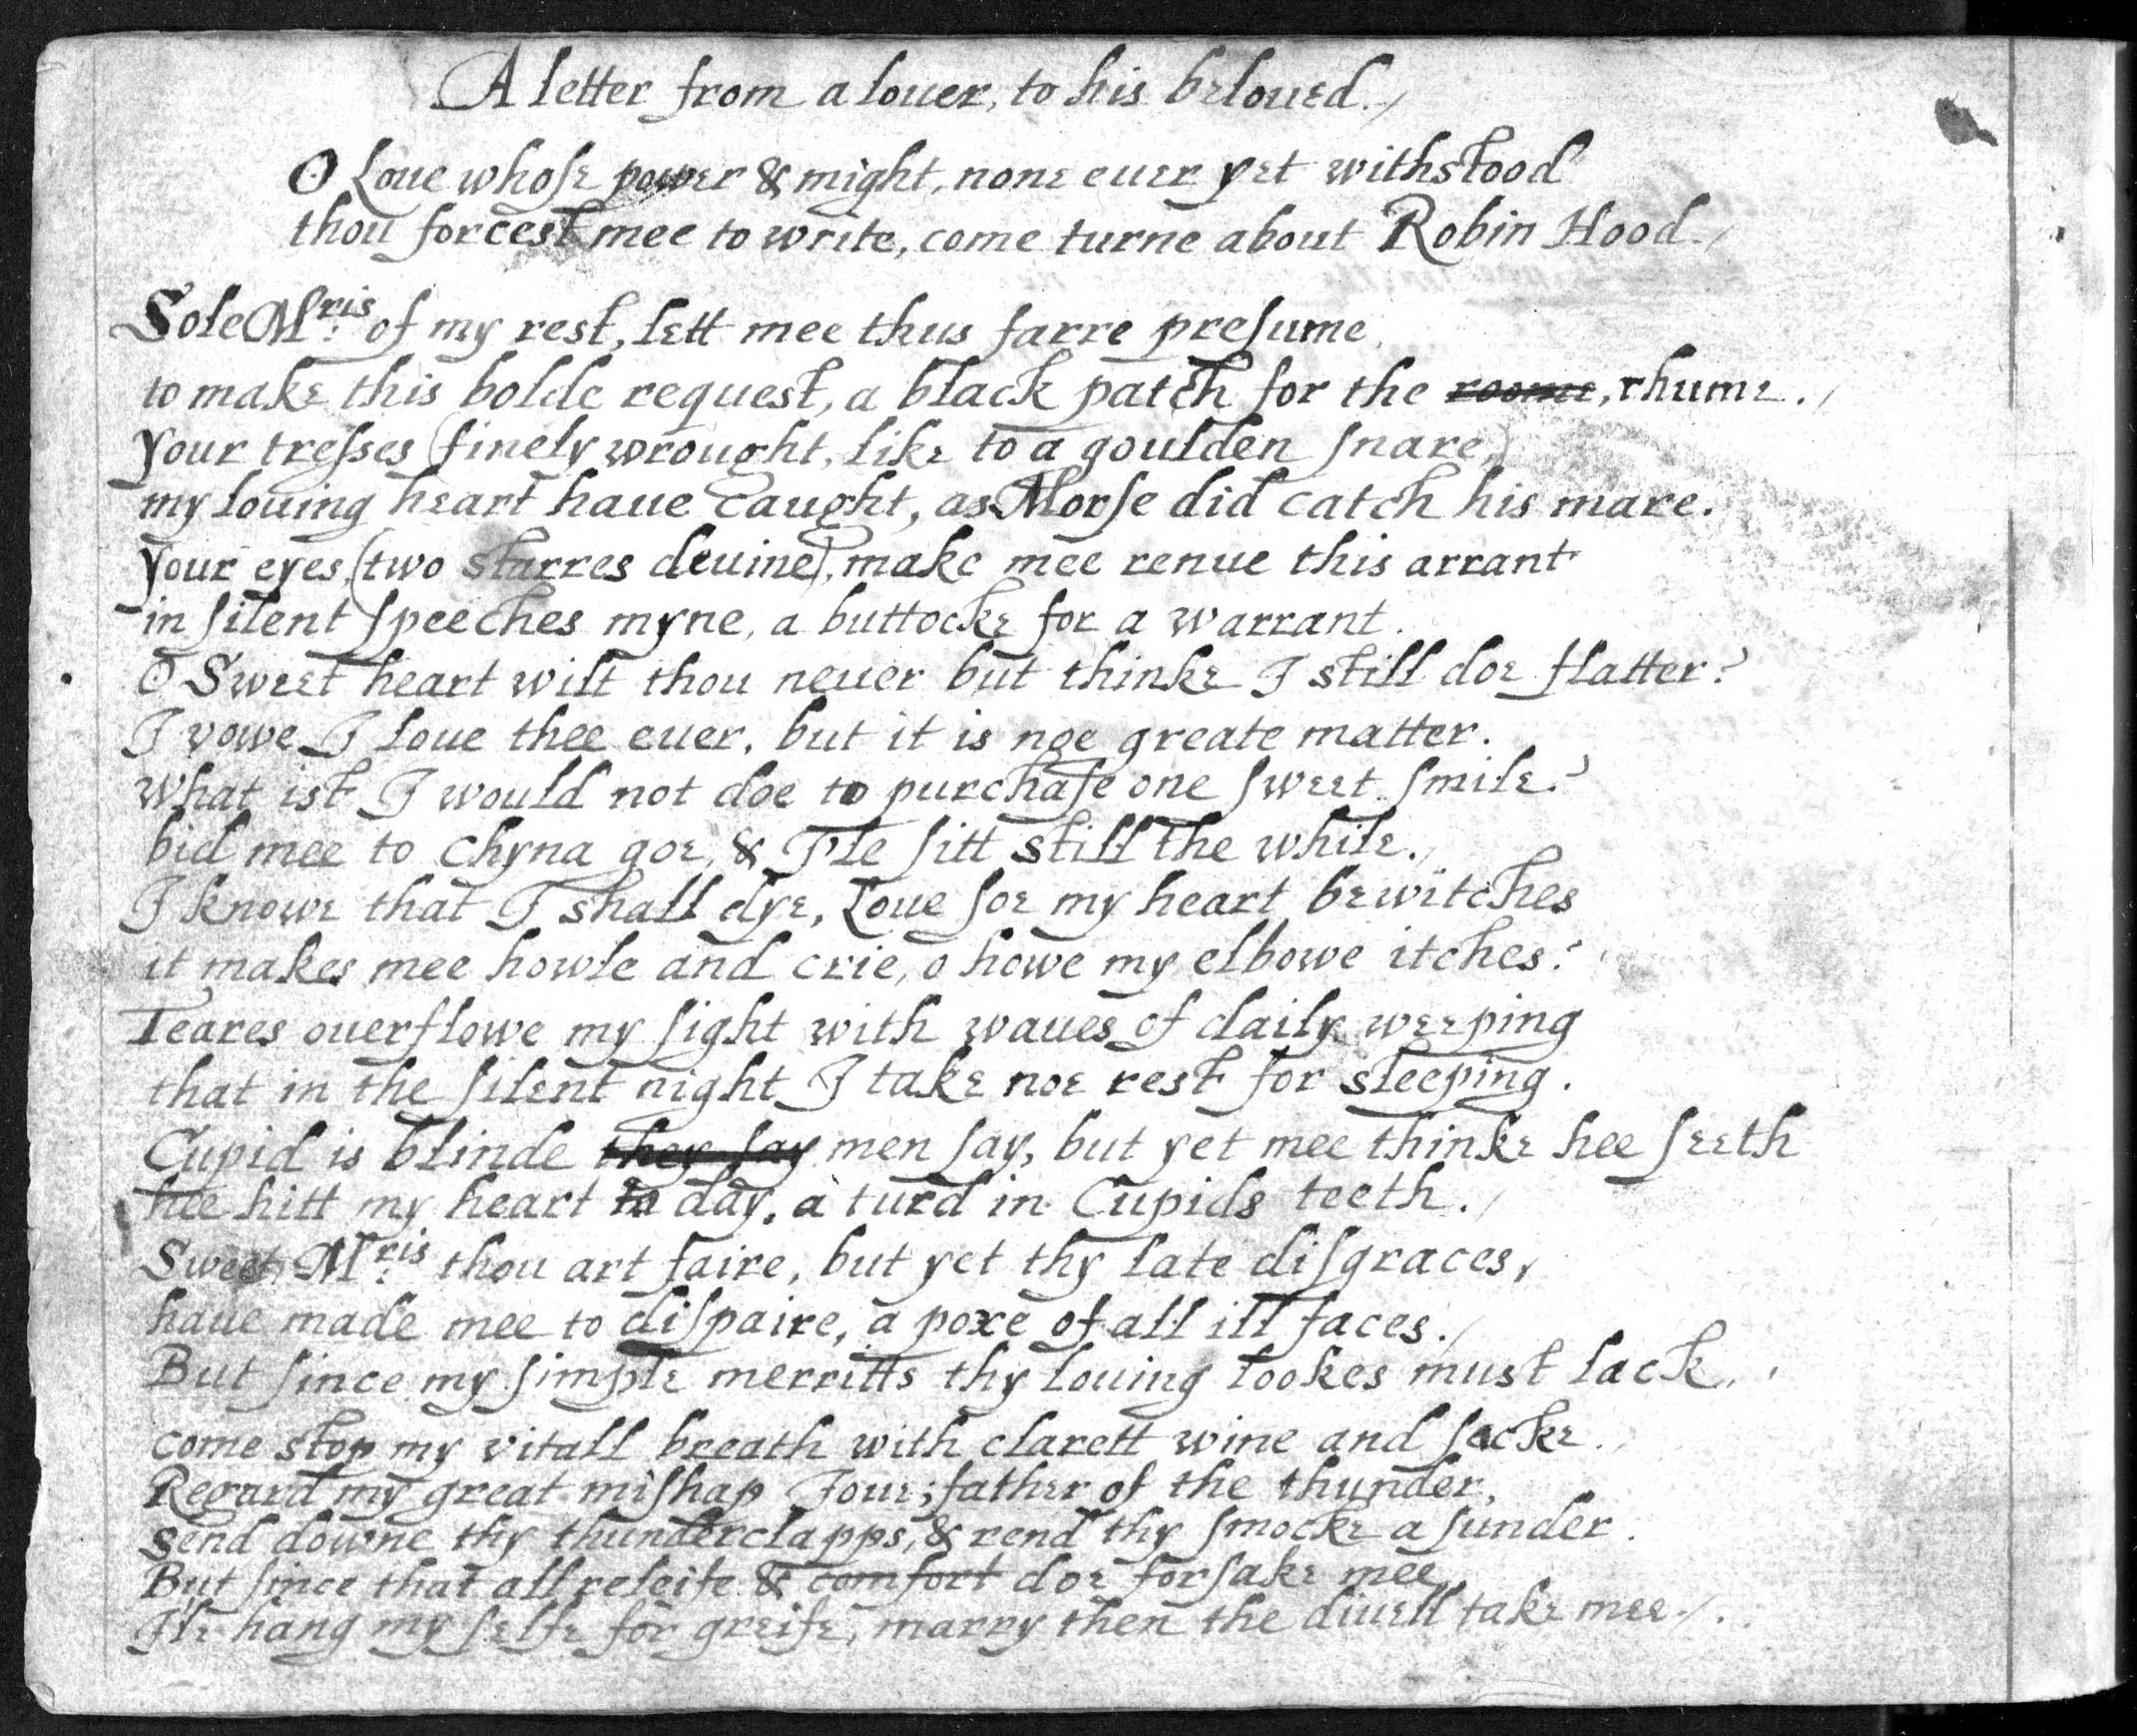 A letter from a louer, to his beloued./
O Loue whose power & might, none euer yet withstood
thou forcest mee to write, come turne about Robin Hood./
Sole Mris: of my rest, lett mee thus farre presume
to make this bolde request, a black patch for the roome, rhume./
Your tresses (finely wrought, like to a goulden snare,)
my louing heart haue caught, as Morse did catch his mare.
Your eyes, (two starres deuine), make mee renue this arrant
in silent speeches myne, a buttocke for a warrant.
O Sweet heart wilt thou neuer but thinke I still doe flatter?
I vowe I loue thee euer, but it is noe greate matter.
What ist I would not doe to purchase one sweet smile?
bid mee to Chyna goe, & I'le sitt still the while./
I knowe that I shall dye, Loue soe my heart bewitches
it makes mee howle and crie, o howe my elbowe itches:
Teares ouerflowe my sight with waues of daily weeping
that in the silent night I take noe rest for sleeping.
Cupid is blinde they say men say, but yet mee thinke hee seeth
hee hitt my heart to day, a turd in Cupids teeth./
Sweet Mris: thou art faire, but yet thy late disgraces,
haue made mee to dispaire, a poxe of all ill faces./
But since my simple merritts thy louing lookes must lack,
come stop my vitall breath with clarett wine and sacke.
Regard my great mishap Ioue; father of the thunder,
send downe thy thunderclapps, & rend thy smocke a sunder.
But since that all releife & comfort doe forsake mee,
Ile hang my selfe for greife, marry then the diuell take mee./.